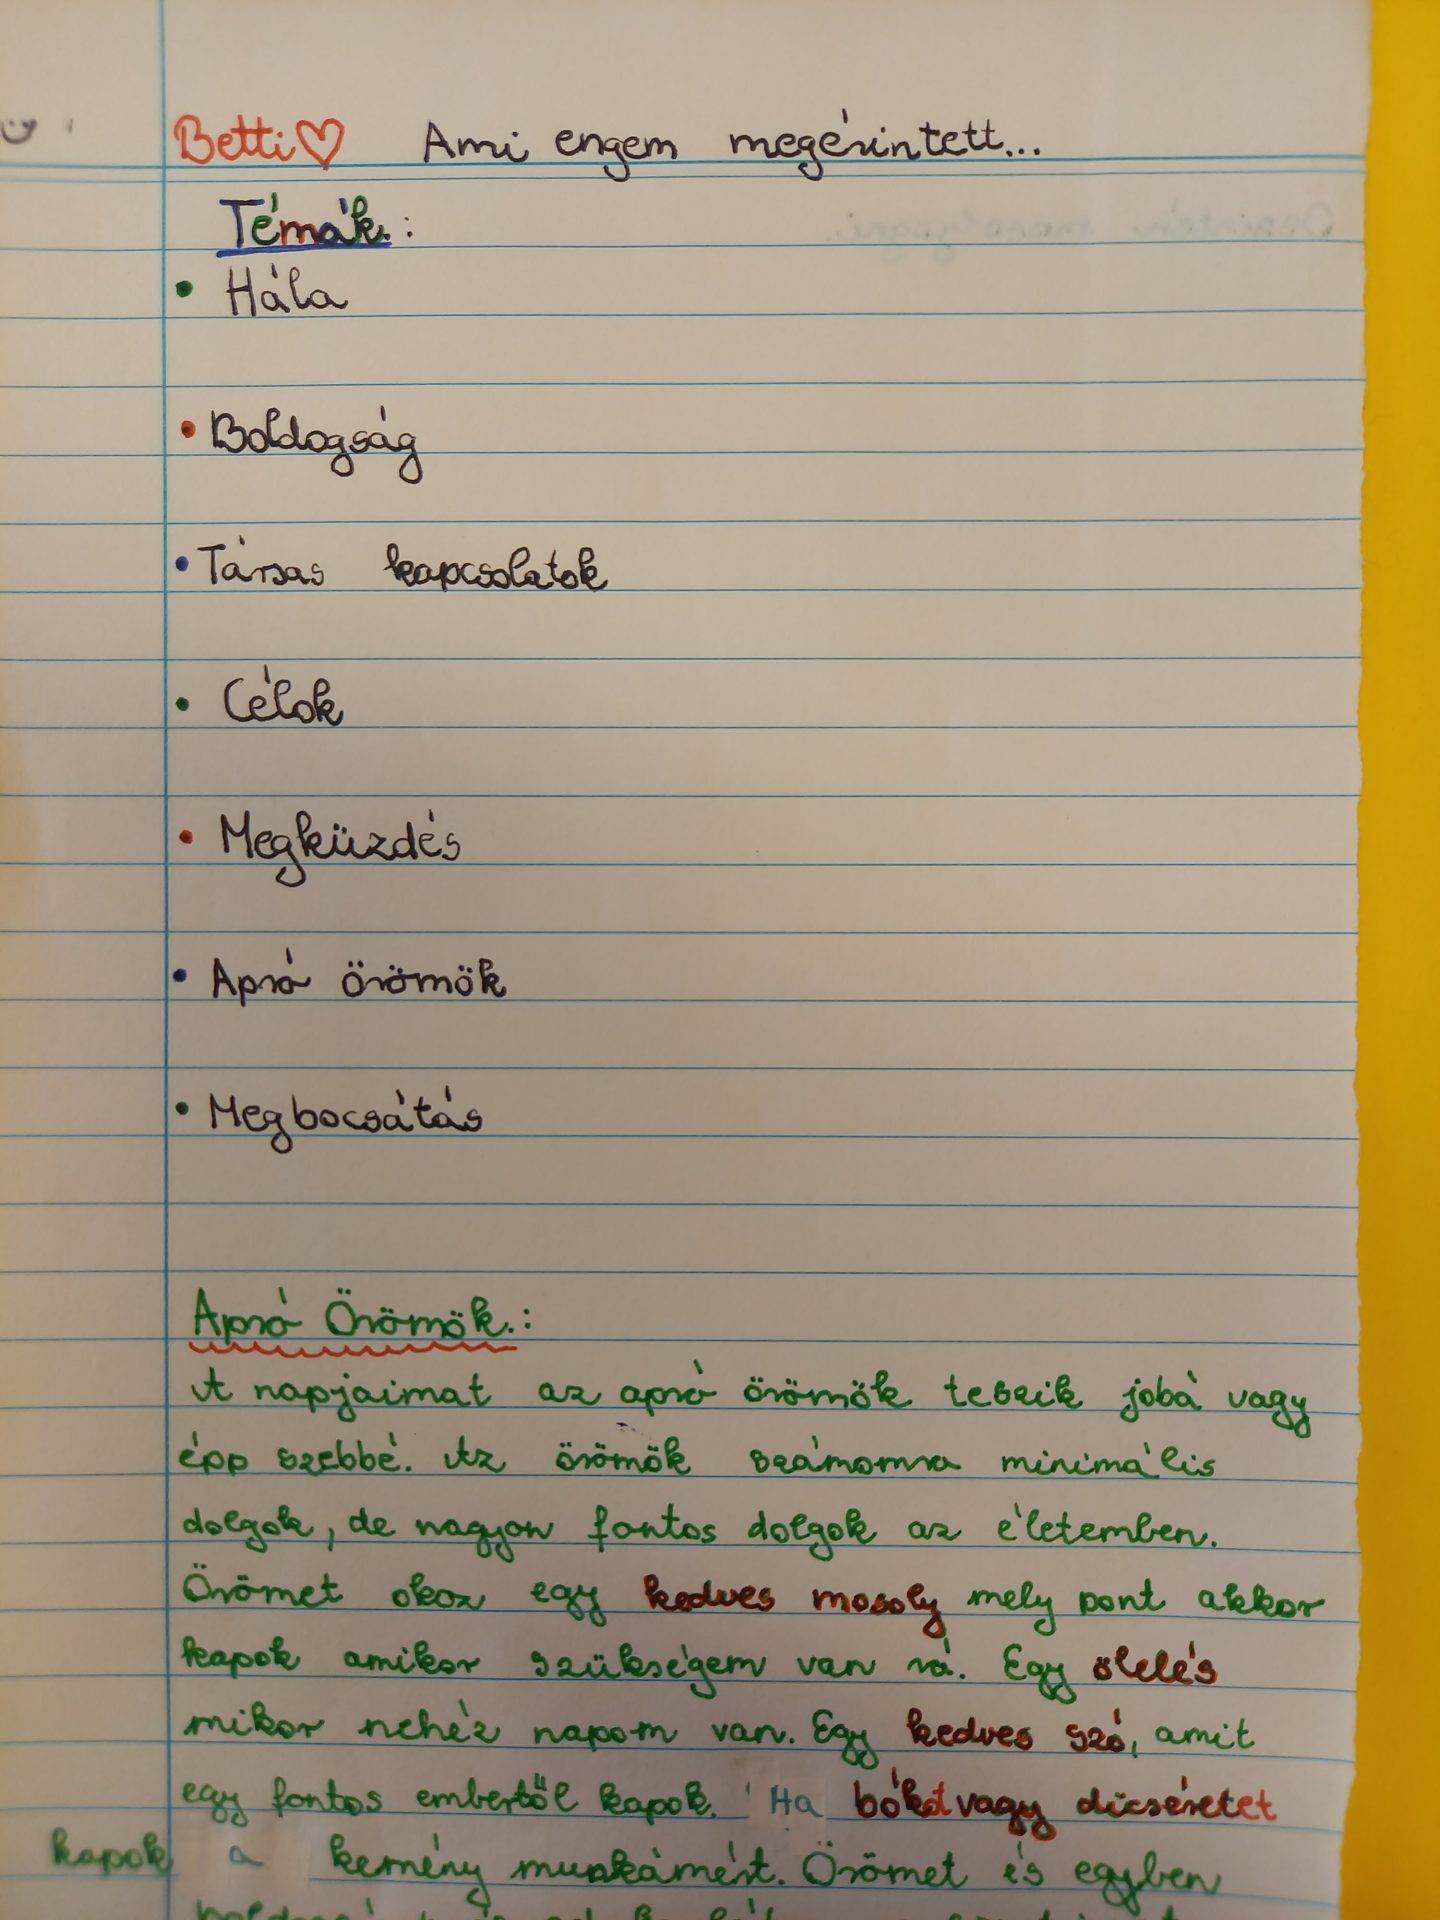 Betti♡ Ami engem megérintett...
Témák.:
• Hála
• Boldogság
• Társas kapcsolatok
• Célok
• Megküzdés
• Apró örömök
• Megbocsátás
Apró Örömök.:
A napjaimat az apró örömök teszik jobá vagy
épp szebbé. Az örömök számomra minimális
dolgok, de nagyon fontos dolgok az életemben.
Örömet okoz egy kedves mosoly mely pont akkor
kapok amikor szükségem van rá. Egy ölelés
mikor nehéz napom van. Egy kedves szó, amit
egy fontos embertől kapok. Ha bókot vagy dícséretet
kapok a kemény munkámért. Örömet és egyben